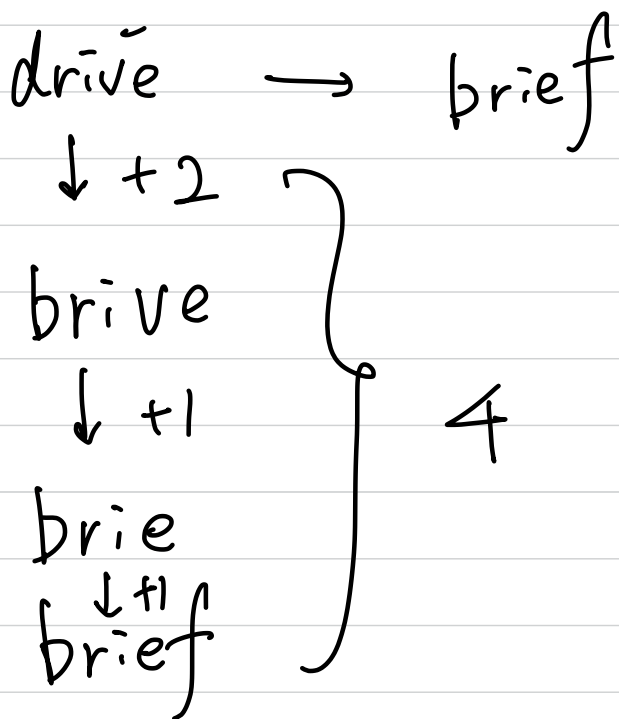 drive → brief
↓ +2
brive
↓ +1
4
brie
↓ +1
brief